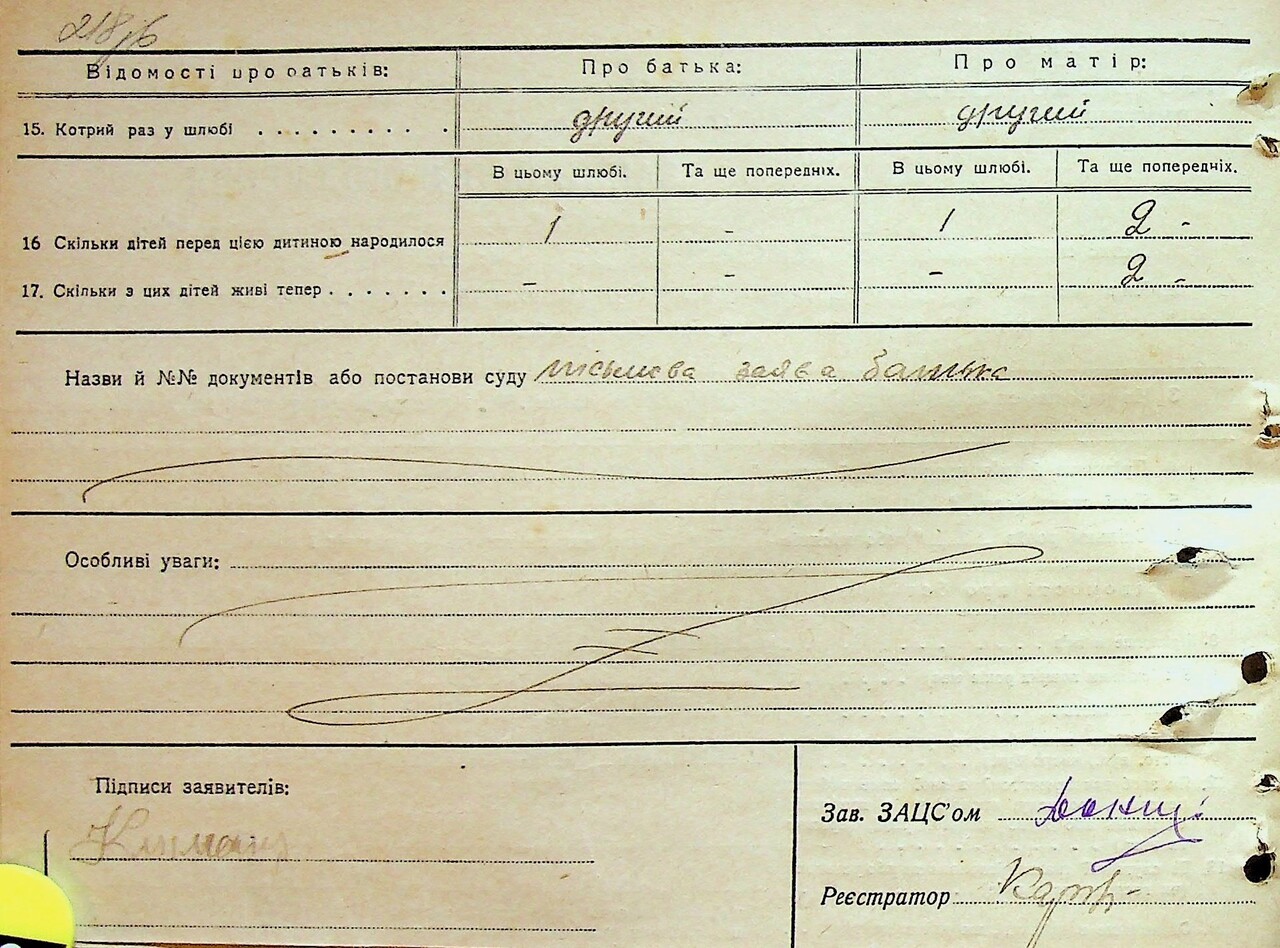 218/б
Відомості про батьків: Про батька: Про матір:
15. Котрий раз у шлюбі . . . . . . . . . . другий другий
В цьому шлюбі. Та ще попередніх. В цьому шлюбі. Та ще попередніх.
16 Скільки дітей перед цією дитиною народилося 1 - 1 2 -
17. Скільки з цих дітей живі тепер . . . . . . . - - - 2 -
Назви й №№ документів або постанови суду письмєва заява батька
Особливі уваги:
Підписи заявителів:
Зав. ЗАЦС'ом
Реєстратор